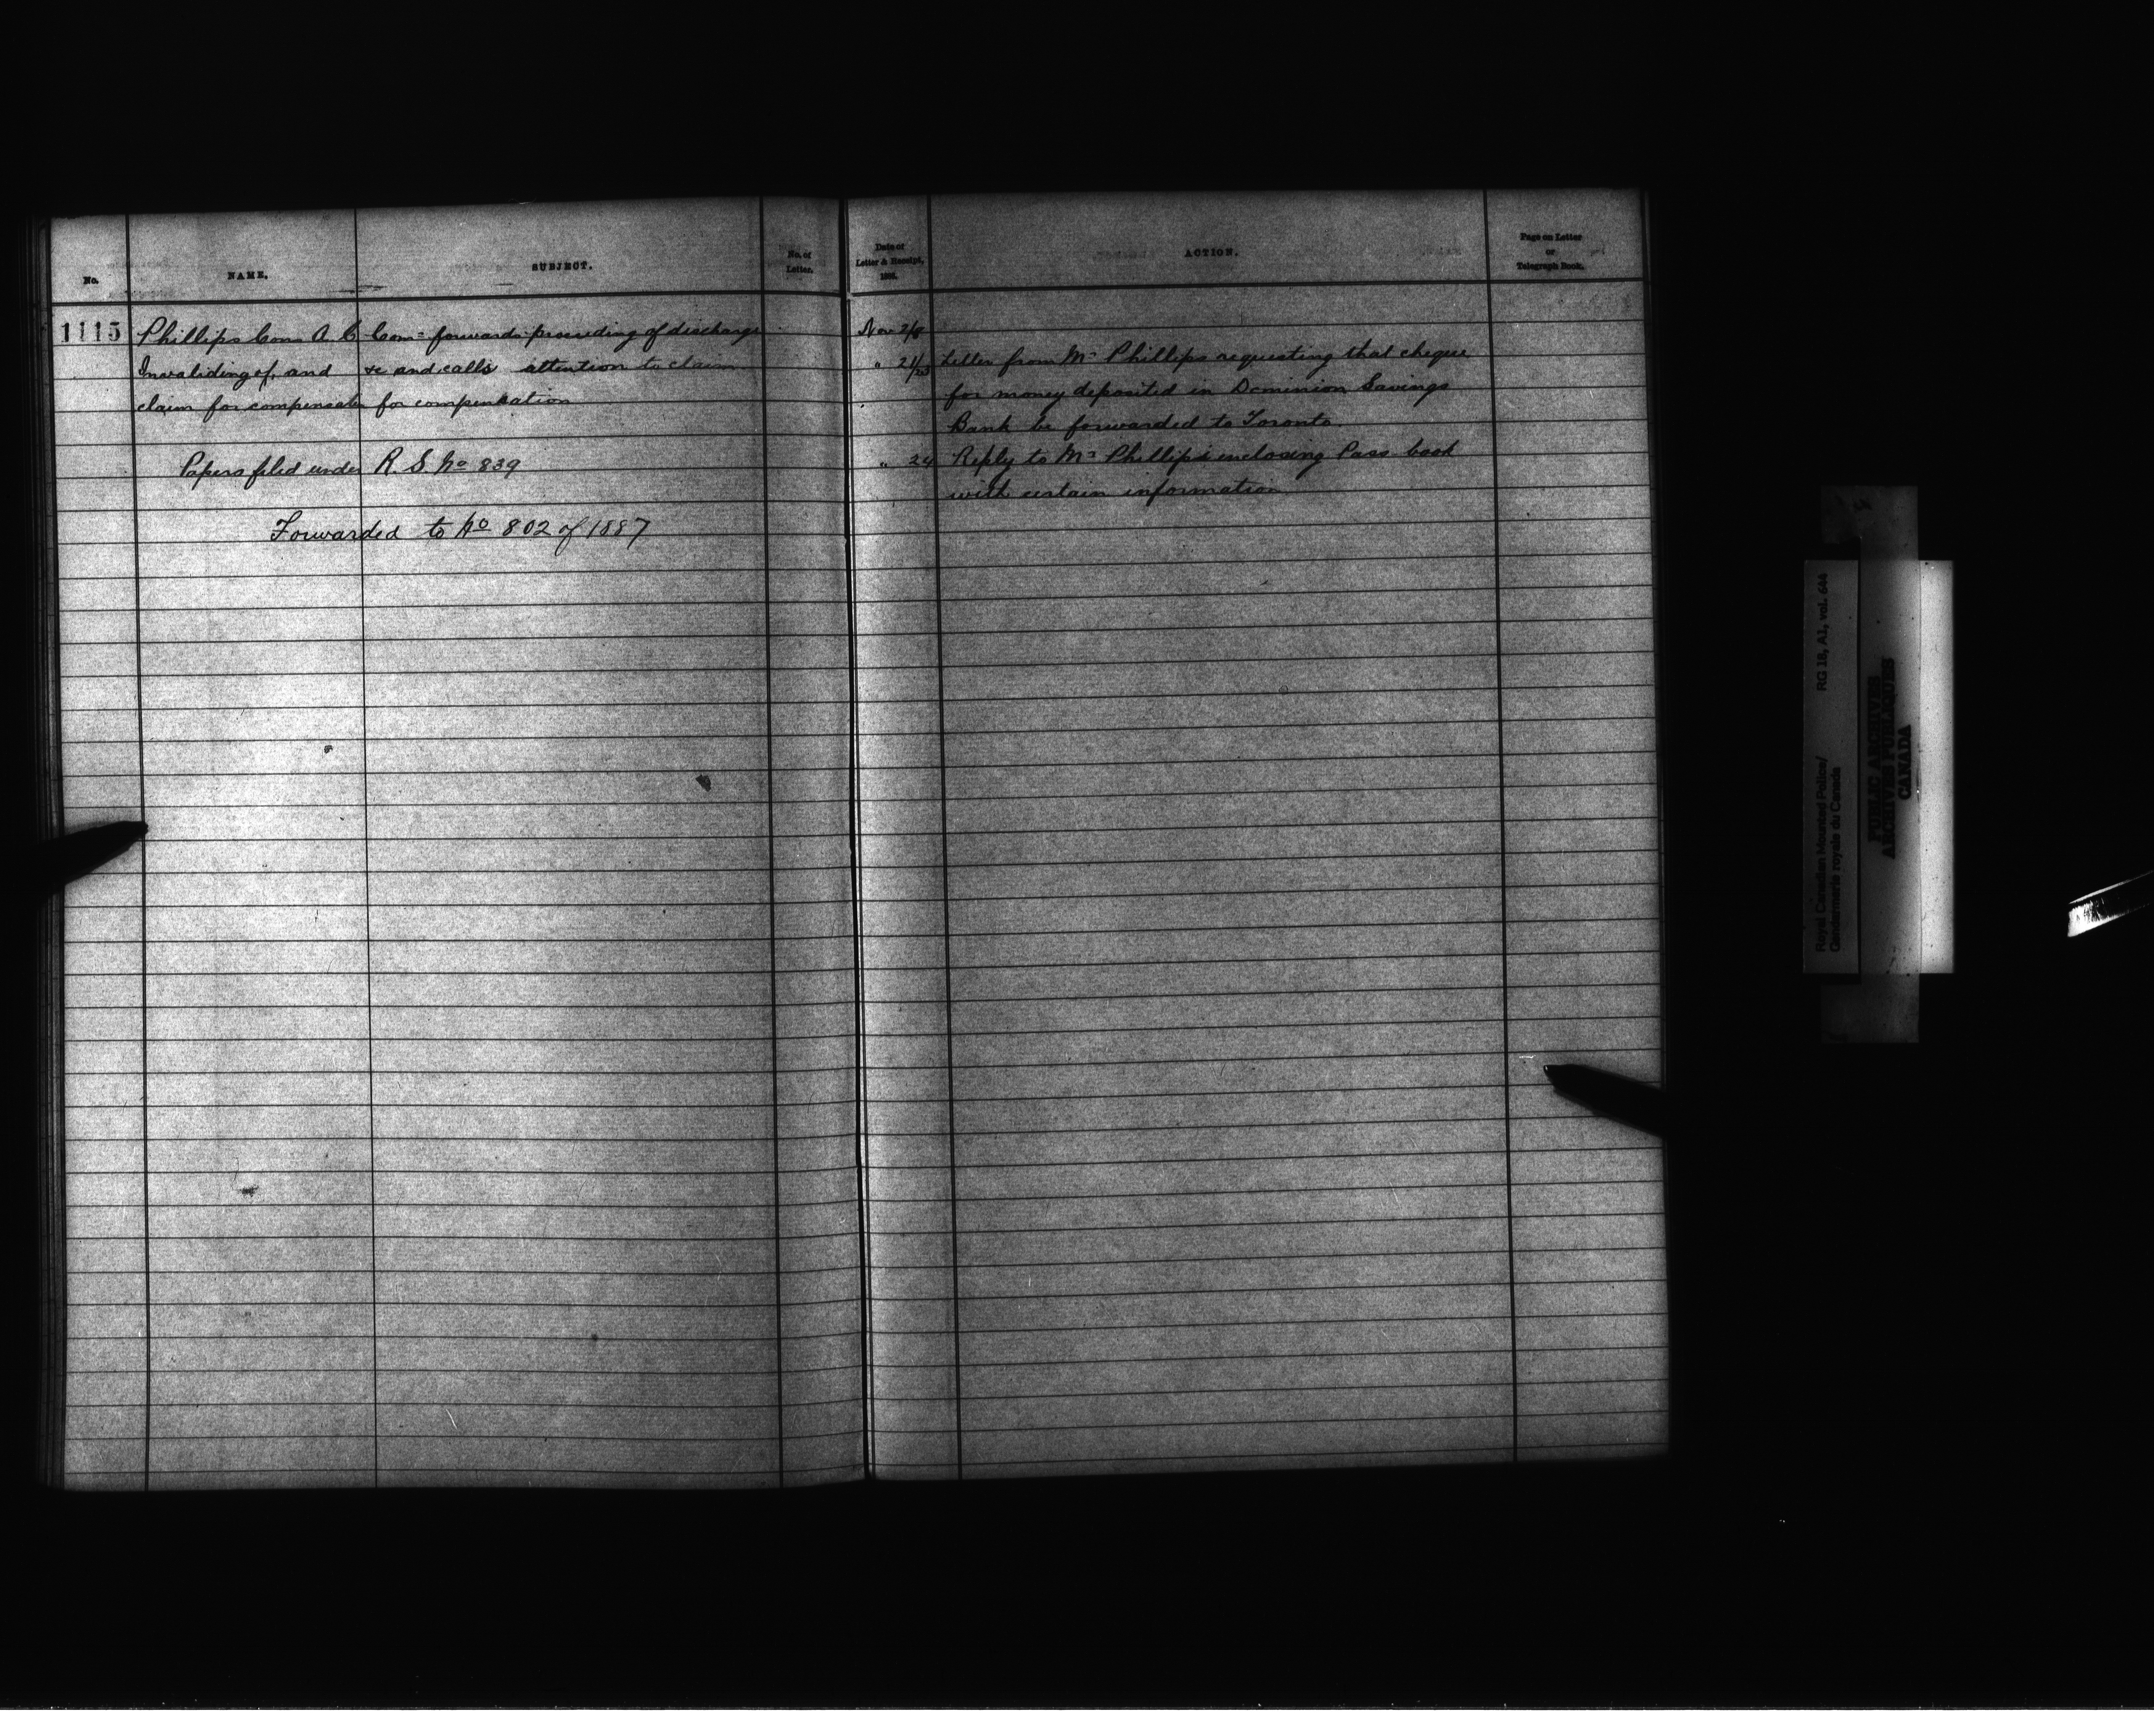 No.
NAME.
SUBJECT.
No. of
Letter.
1115 Phillips Cons A. C. Com= forwards proceeding of discharge
Invaliding of, and &c and calls attention to claim
claim for compensatn for compensation
Papers filed under R. S. No 839
Forwarded to No 802 of 1887
Date of
Letter & Receipt,
ACTION.
Page on Letter
or
Telegraph Book.
Nov 2/8
" 21/23 Letter from Mr Phillips requesting that cheque
for money deposited in Dominion Savings
Bank be forwarded to Toronto.
" 24 Reply to Mr Phillips enclosing Pass book
with certain information
Royal Canadian Mounted Police/
Gendarmerie royale du Canada
RG 18, A1, vol. 644
PUBLIC ARCHIVES
ARCHIVES PUBLIQUES
CANADA